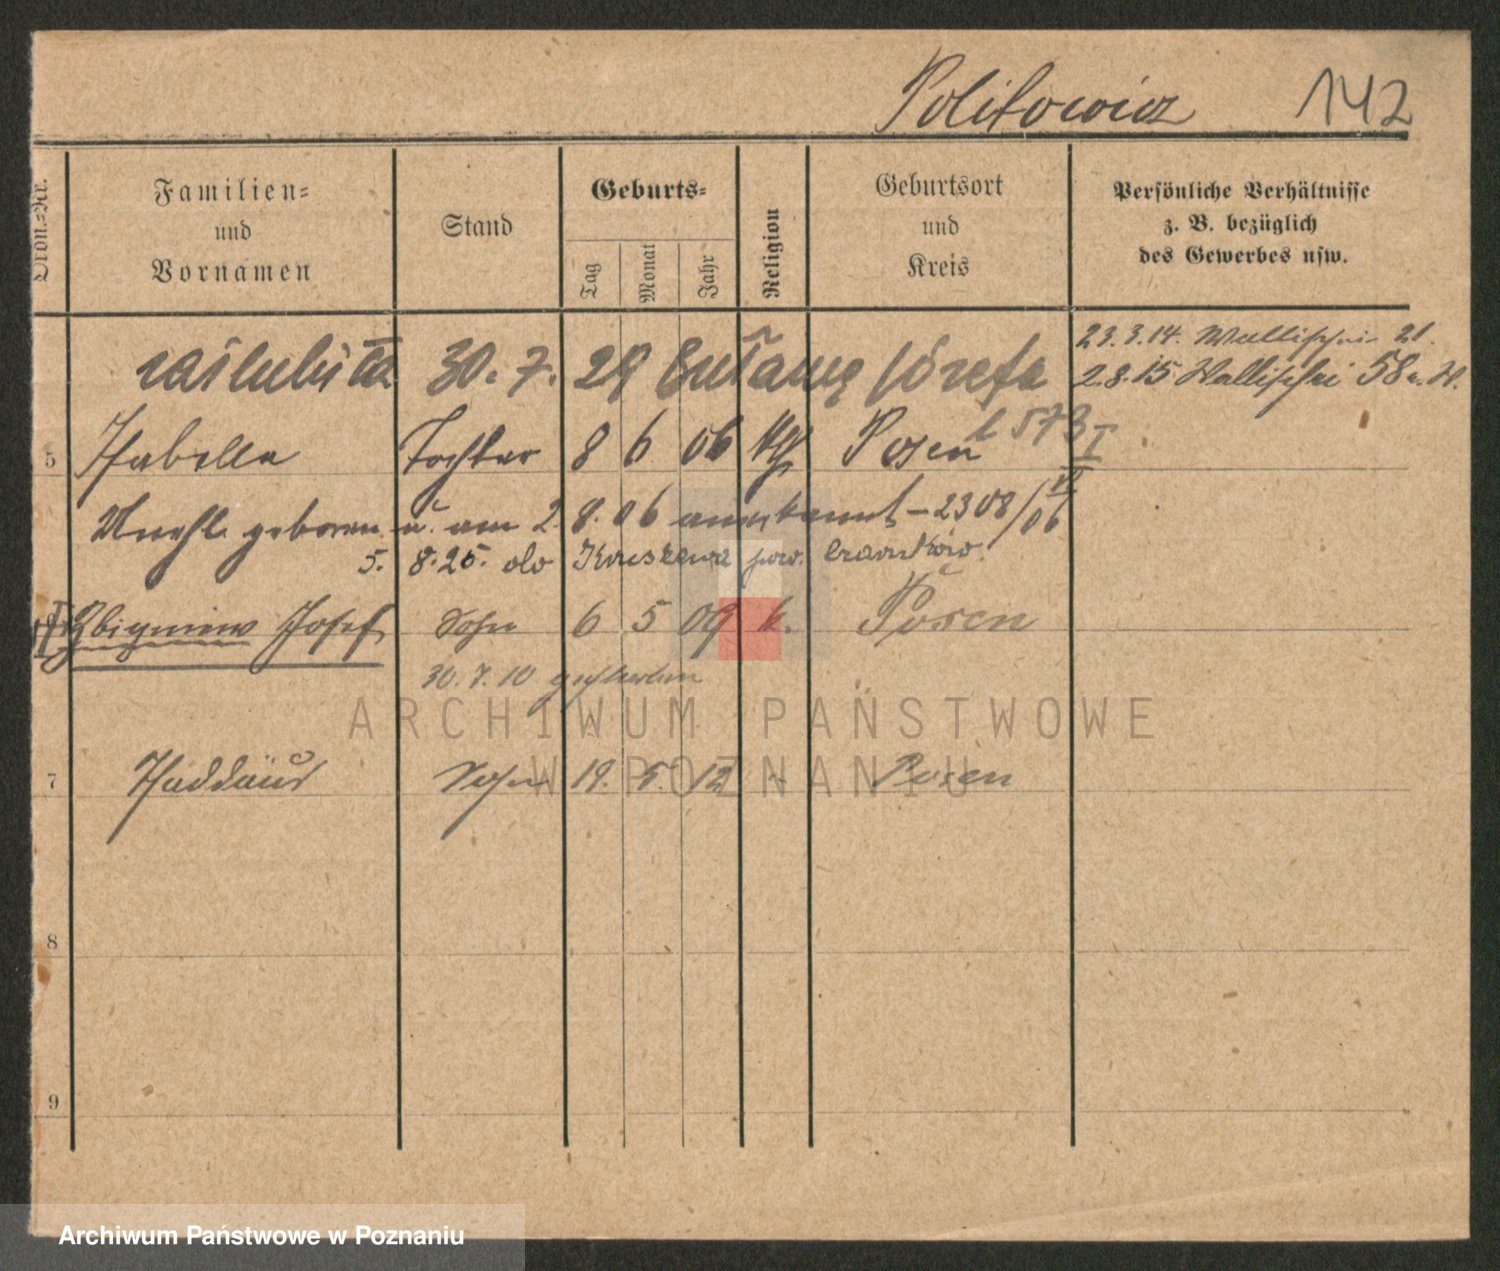 Politowicz 142
Ordn.-Nr.
Familien-
und
Vornamen
Stand
Geburts-
Tag
Monat
Jahr
Religion
Geburtsort
und
Kreis
Persönliche Verhältnisse
z. B. bezüglich
des Gewerbes usw.
23.3.14. Wallischei 21.
2.8.15 Wallischei 58
zaślubiła 30.7.29 Józefa
5 Isabella Tochter 8 6 06 Posen
Unehl. geboren u. am 2. 8. 06 anerkannt - 2308/06
5. 8.25. do pow.
Zbigniew Josef Sohn 6 5 09 k. Posen
30.7.10 gestorben
7 Thaddäus Sohn 19. 5. 12 Posen
8
9
ARCHIWUM PAŃSTWOWE
W POZNANIU
Archiwum Państwowe w Poznaniu